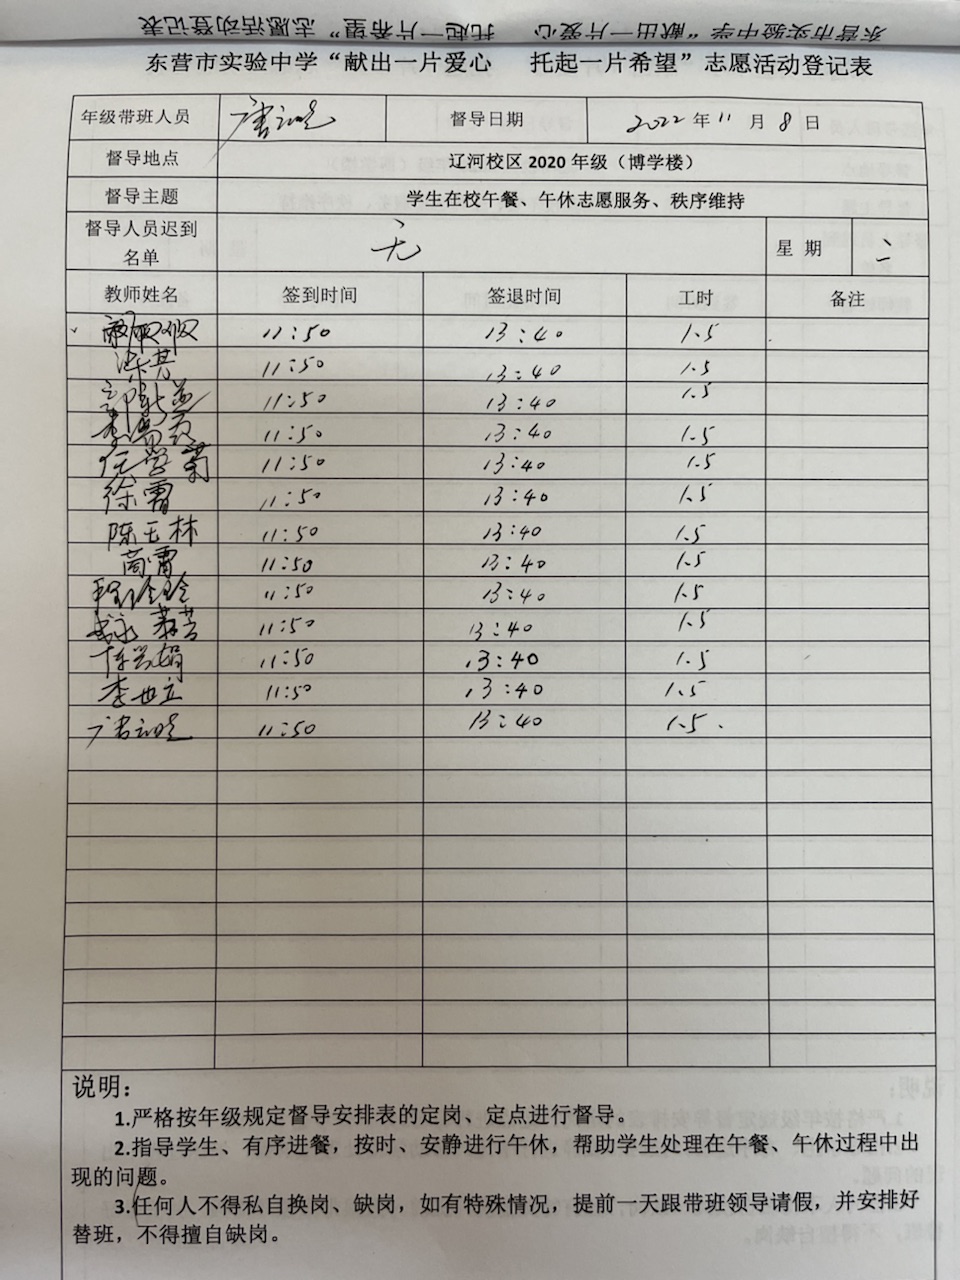 东营市实验中学“献出一片爱心 托起一片希望”志愿活动登记表
东营市实验中学“献出一片爱心 托起一片希望”志愿活动登记表
年级带班人员 督导日期 2022年11月8日
督导地点 辽河校区2020年级（博学楼）
督导主题 学生在校午餐、午休志愿服务、秩序维持
督导人员迟到名单 无 星期 二
教师姓名 签到时间 签退时间 工时 备注
11:50 13:40 1.5
11:50 13:40 1.5
11:50 13:40 1.5
11:50 13:40 1.5
任学菊 11:50 13:40 1.5
徐霄 11:50 13:40 1.5
陈玉林 11:50 13:40 1.5
11:50 13:40 1.5
程玲玲 11:50 13:40 1.5
11:50 13:40 1.5
11:50 13:40 1.5
李世立 11:50 13:40 1.5
11:50 13:40 1.5
说明：
1.严格按年级规定督导安排表的定岗、定点进行督导。
2.指导学生、有序进餐，按时、安静进行午休，帮助学生处理在午餐、午休过程中出
现的问题。
3.任何人不得私自换岗、缺岗，如有特殊情况，提前一天跟带班领导请假，并安排好
替班，不得擅自缺岗。